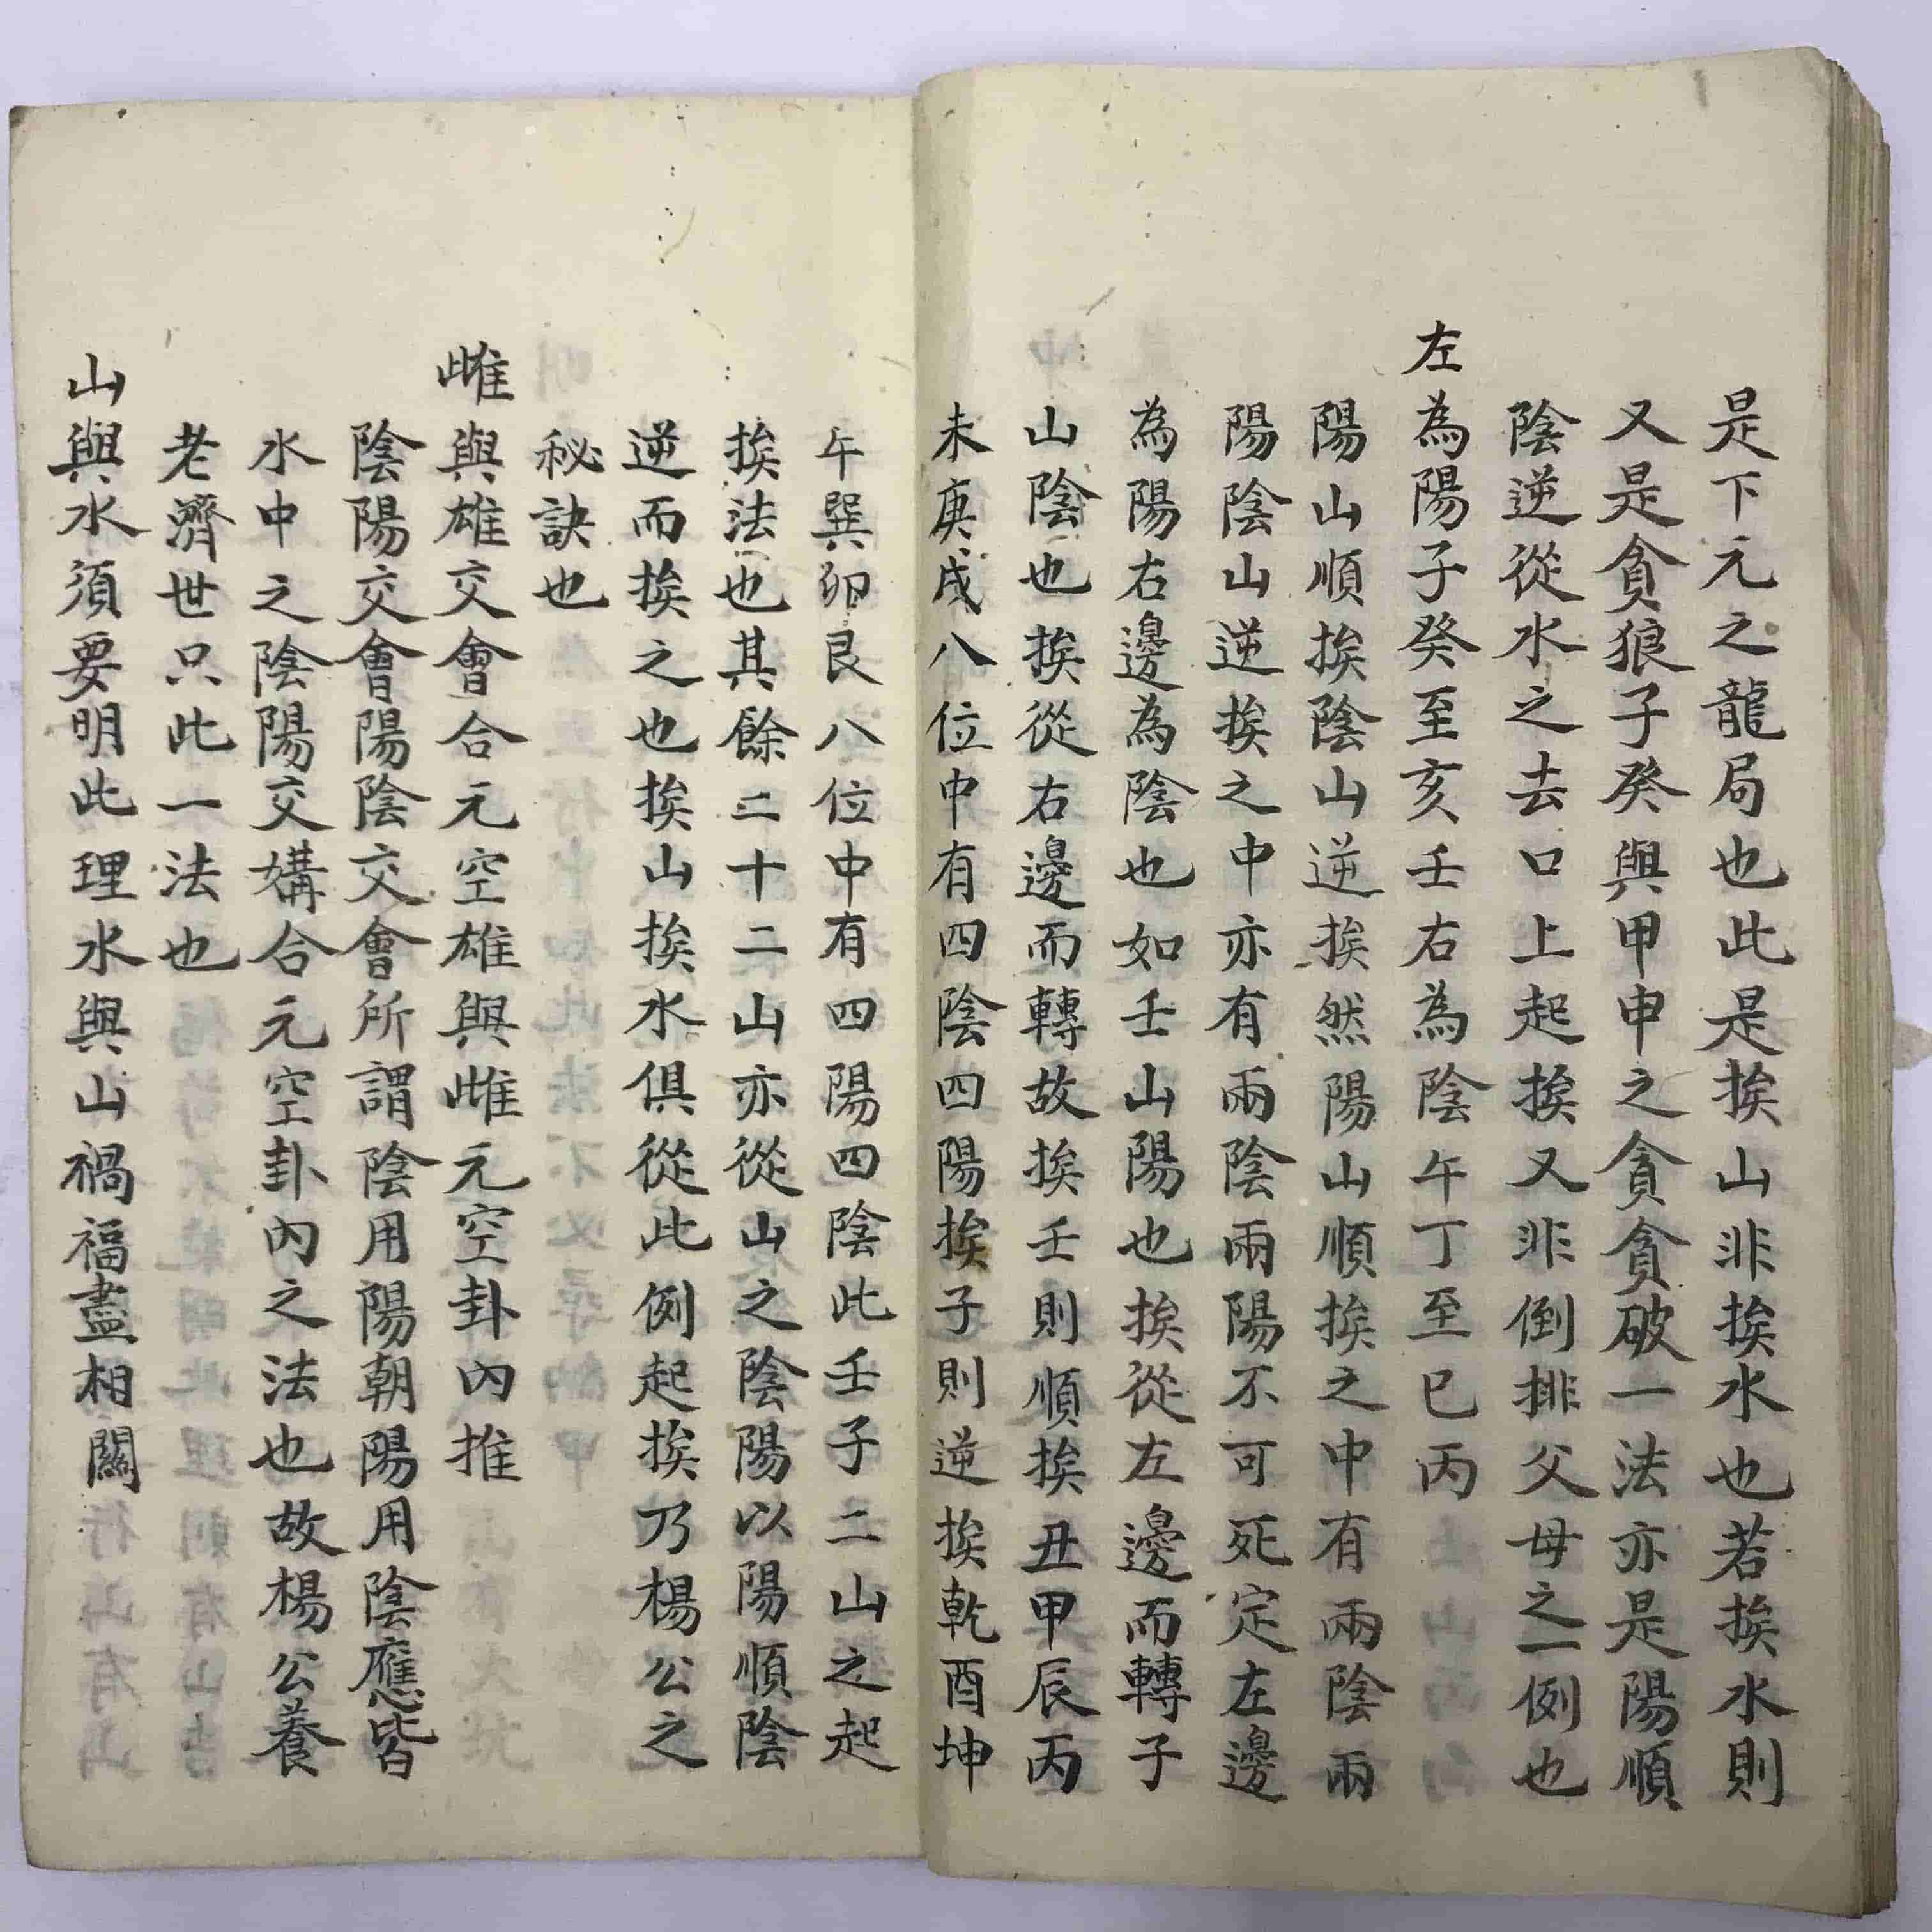 是下元之龍局也此是挨山非挨水也若挨水則
又是貪狼子癸與甲申之貪貪破一法亦是陽順
陰逆從水之去口上起挨又非倒排父母之一例也
左為陽子癸至亥壬右為陰午丁至巳丙
陽山順挨陰山逆挨然陽山順挨之中有兩陰兩
陽陰山逆挨之中亦有兩陰兩陽不可死定左邊
為陽右邊為陰也如壬山陽也挨從左邊而轉子
山陰也挨從右邊而轉故挨壬則順挨丑甲辰丙
未庚戌八位中有四陰四陽挨子則逆挨乾酉坤
午巽卯艮八位中有四陽四陰此壬子二山之起
挨法也其餘二十二山亦從山之陰陽以陽順陰
逆而挨之也挨山挨水俱從此例起挨乃楊公之
秘訣也
雌與雄交會合元空雄與雌元空卦內推
陰陽交會陽陰交會所謂陰用陽朝陽用陰應皆
水中之陰陽交媾合元空卦內之法也故楊公養
老濟世只此一法也
山與水須要明此理水與山禍福盡相關